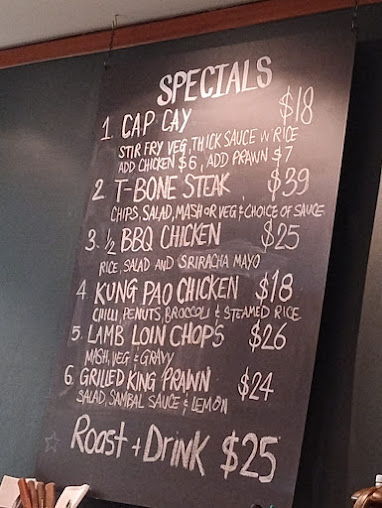 SPECIALS
1. CAP CAY $18
STIR FRY VEG, THICK SAUCE W RICE
ADD CHICKEN $6, ADD PRAWN $7
2 T-BONE STEAK $39
CHIPS, SALAD, MASH OR VEG & CHOICE OF SAUCE
3. ½ BBQ CHICKEN $25
RICE, SALAD AND SRIRACHA MAYO
4. KUNG PAO CHICKEN $18
CHILLI, PENUTS, BROCCOLI & STEAMED RICE
5. LAMB LOIN CHOPS $26
MASH, VEG & GRAVY
6. GRILLED KING PRAWN $24
SALAD, SAMBAL SAUCE & LEMON
☆ Roast + Drink $25